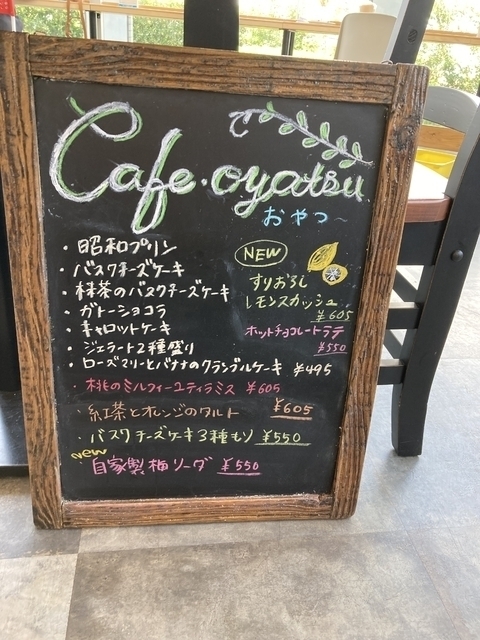 Cafe・oyatsu
おやつ〜
・昭和プリン
・バスクチーズケーキ
・抹茶のバスクチーズケーキ
・ガトーショコラ
・キャロットケーキ
・ジェラート2種盛り
・ローズマリーとバナナのクランブルケーキ ¥495
・桃のミルフィーユティラミス ¥605
・紅茶とオレンジのタルト ¥605
・バスクチーズケーキ3種もり ¥550
new
・自家製梅ソーダ ¥550
NEW
すりおろし
レモンスカッシュ
¥605
ホットチョコレートラテ
¥550